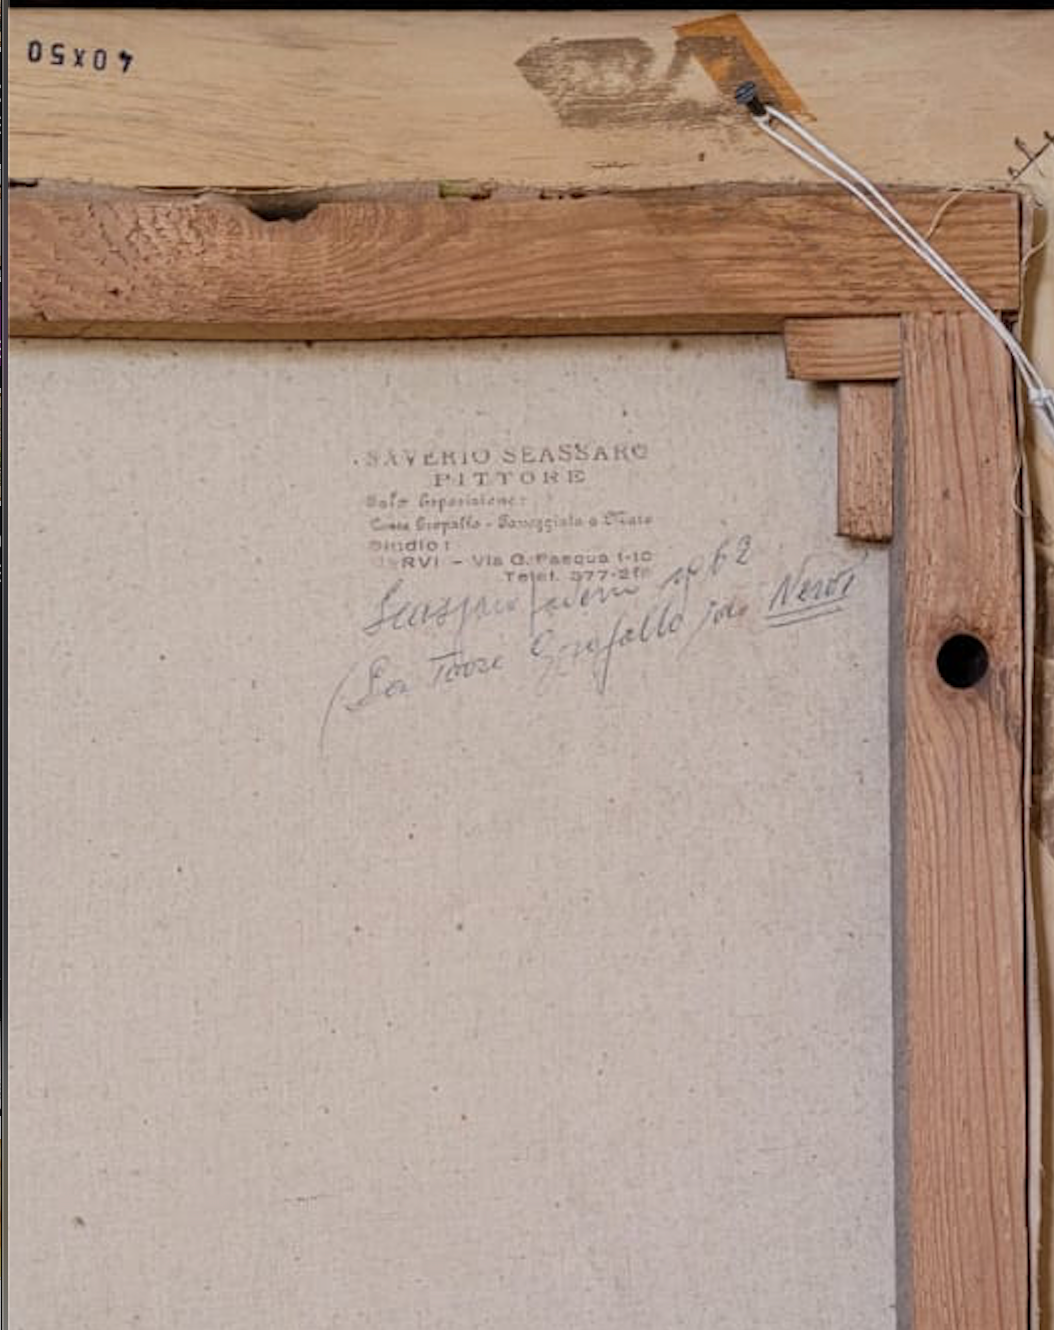 40X50
SAVERIO SEASSARO
PITTORE
Sala Esposizione:
Torre Gropallo - Passeggiata a Mare
Studio:
NERVI - Via G. Pascua 1-10
Telef. 377-2
Seassaro Saverio 1962
(La Torre Gropallo) di Nervi